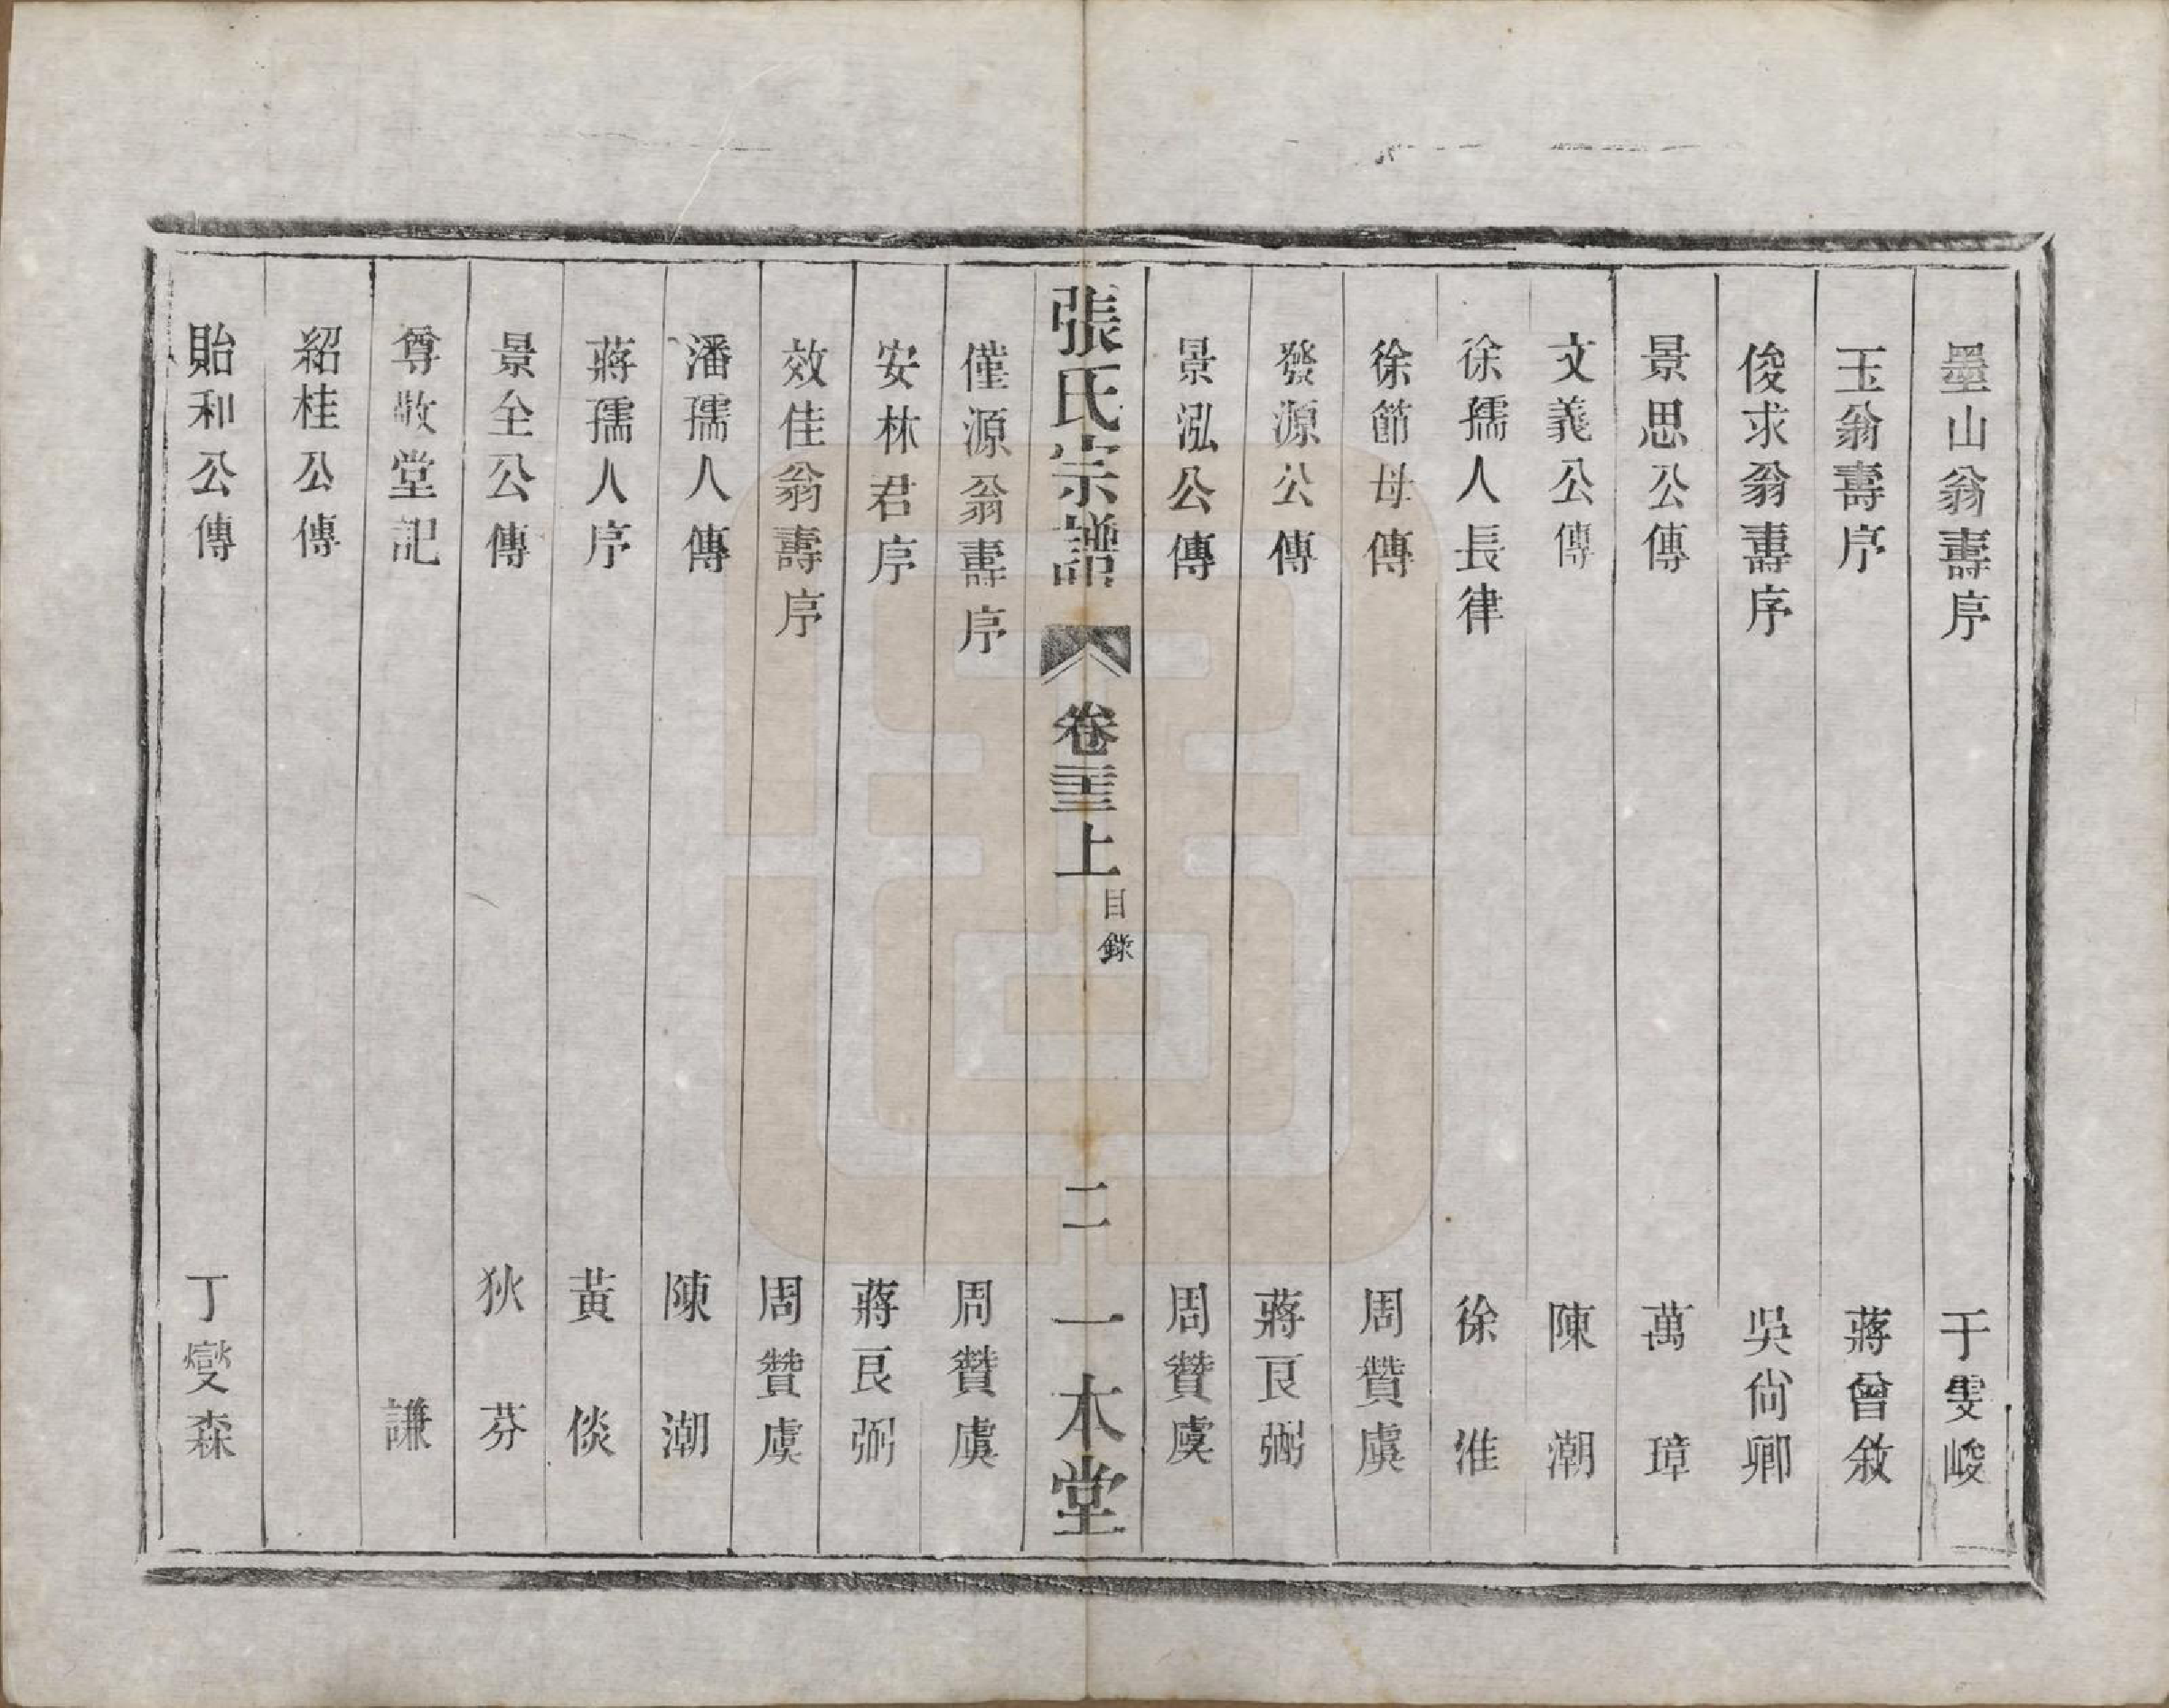 墨山翁壽序 于雯峻
玉翁壽序 蔣曾敘
俊求翁壽序 吳尙卿
景思公傳 萬璋
文義公傳 陳潮
徐孺人長律 徐淮
徐節母傳 周贊虞
發源公傳 蔣良弼
景泓公傳 周贊虞
張氏宗譜 卷三十三上 目錄 二 一本堂
僅源翁壽序 周贊虞
安林君序 蔣良弼
效佳翁壽序 周贊虞
潘孺人傳 陳潮
蔣孺人序 黃倓
景全公傳 狄芬
尊敬堂記 謙
紹桂公傳
貽和公傳 丁燮森